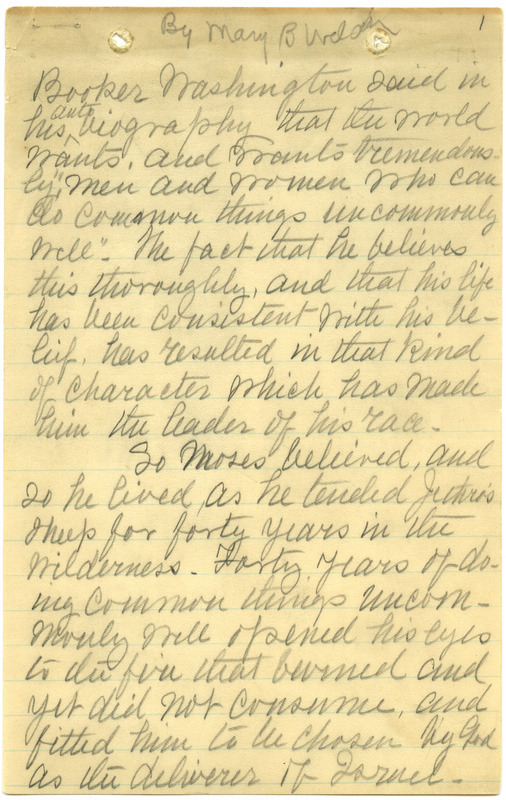 By Mary B Welch 1
Booker Washington said in
his auto biography that the world
"wants, and wants tremendous-
ly, men and women who can
do common things uncommonly
well". The fact that he believes
this thoroughly, and that his life
has been consistent with his be-
lief, has resulted in that kind
of character which has made
him the leader of his race.
So Moses believed, and
so he lived, as he tended Jethro's
sheep for forty years in the
wilderness. Forty years of do-
ing common things uncom-
monly well opened his eyes
to the fire that burned and
yet did not consume, and
fitted him to be chosen by God
as the deliverer of Israel.